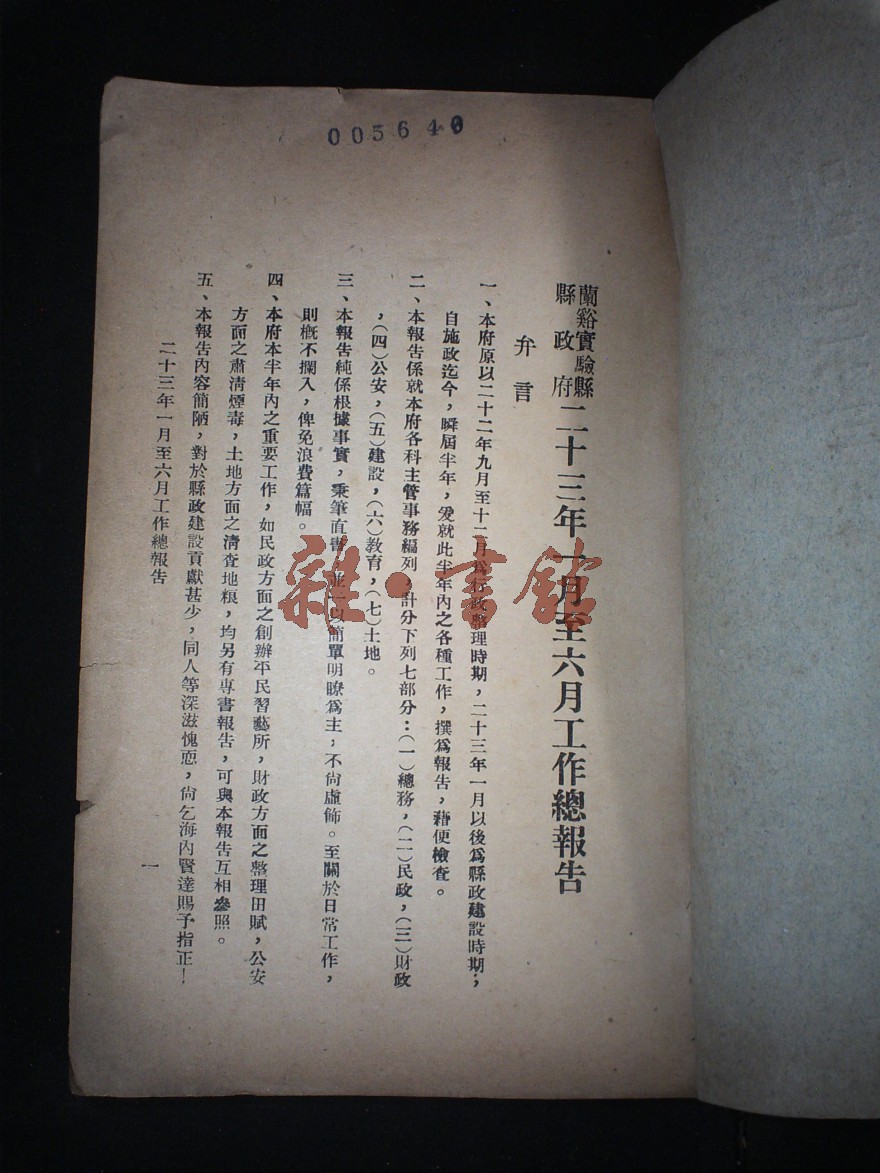 005640
蘭谿實驗縣縣政府二十三年一月至六月工作總報告
弁言
一、本府原以二十二年九月至十二月爲行政整理時期，二十三年一月以後爲縣政建設時期；
自施政迄今，瞬屆半年，爰就此半年內之各種工作，撰爲報告，藉便檢查。
二、本報告係就本府各科主管事務編列，計分下列七部分：（一）總務，（二）民政，（三）財政
，（四）公安，（五）建設，（六）教育，（七）土地。
三、本報告純係根據事實，秉筆直書，並以簡單明瞭爲主，不尙虛飾。至關於日常工作，
則槪不攔入，俾免浪費篇幅。
四、本府本半年內之重要工作，如民政方面之創辦平民習藝所，財政方面之整理田賦，公安
方面之肅淸煙毒，土地方面之淸查地粮，均另有專書報告，可與本報告互相參照。
五、本報告內容簡陋，對於縣政建設貢獻甚少，同人等深滋愧恧，尙乞海內賢達賜予指正！
二十三年一月至六月工作總報告
一
雜·書館